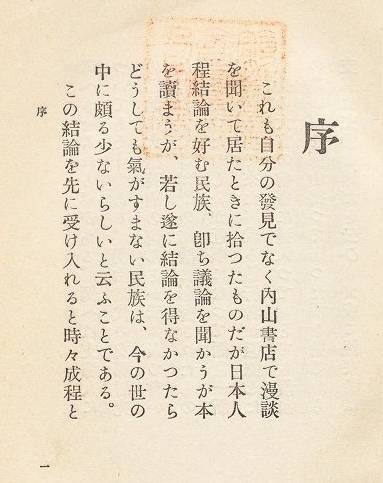 序
これも自分の發見でなく內山書店で漫談
を聞いて居たときに拾つたものだが日本人
程結論を好む民族、卽ち議論を聞かうが本
を讀まうが、若し遂に結論を得なかつたら
どうしても氣がすまない民族は、今の世の
中に頗る少ないらしいと云ふことである。
この結論を先に受け入れると時々成程と
序
一